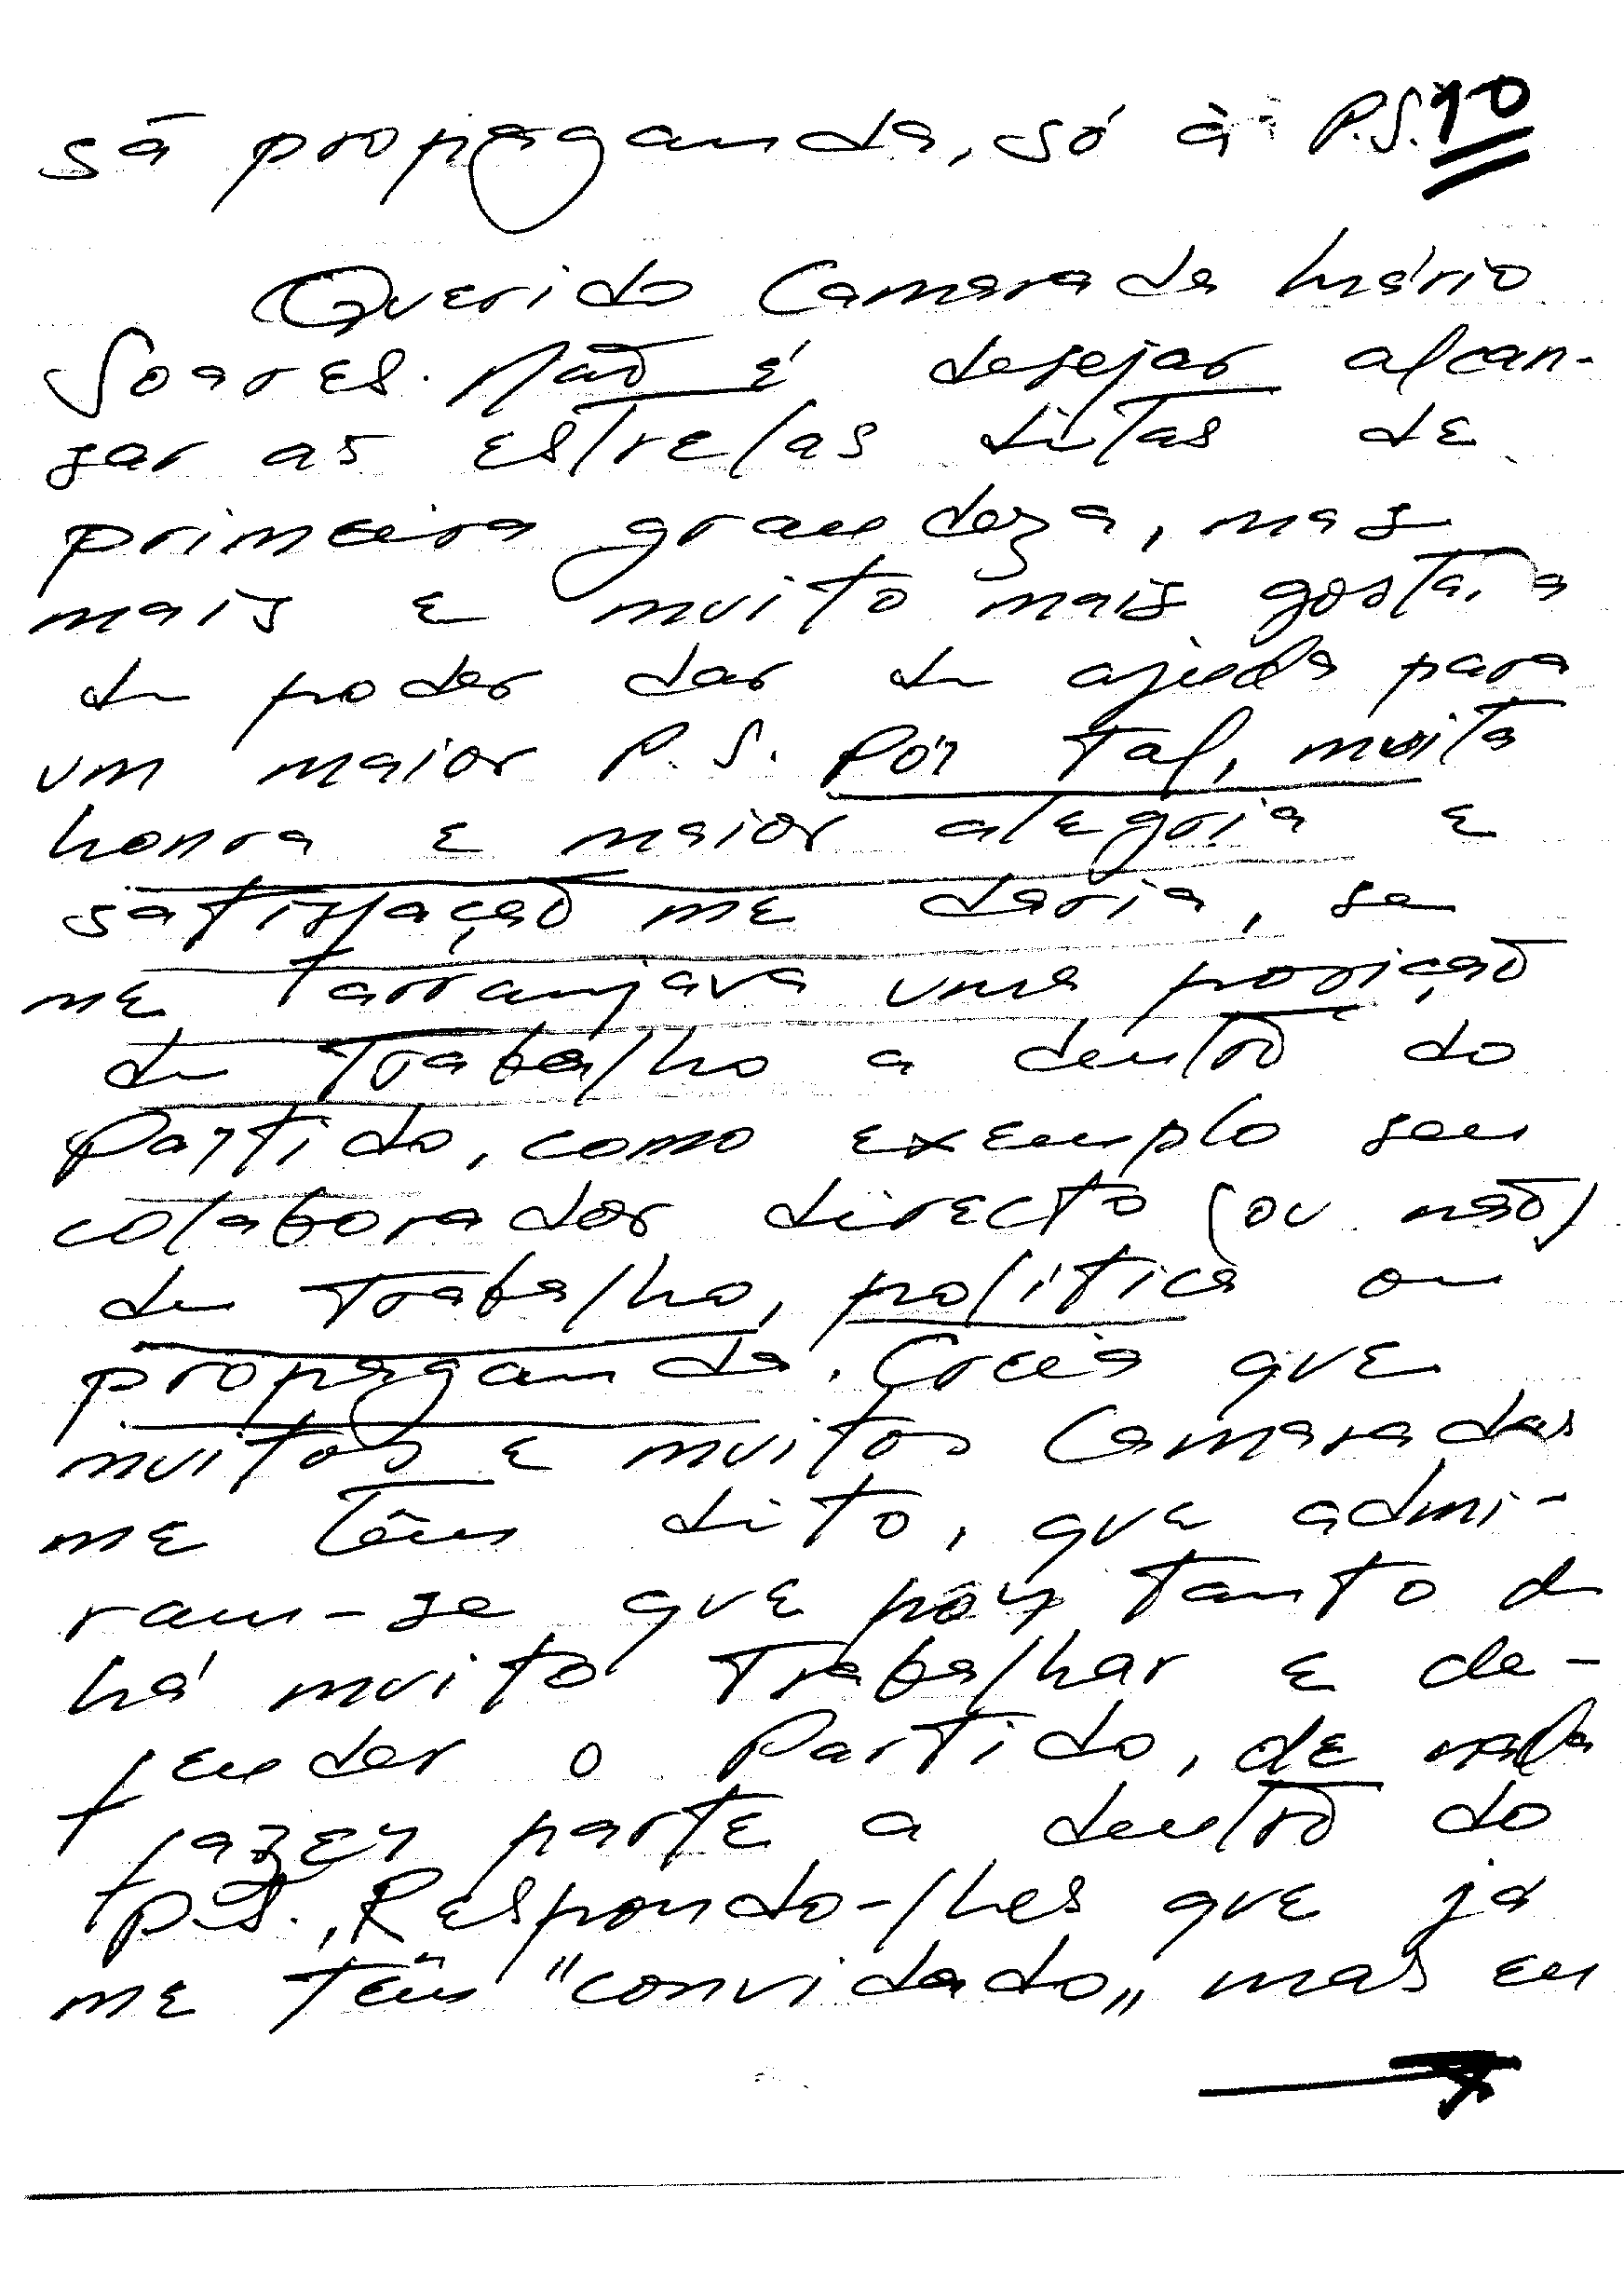 sã propaganda, só à P.S. 10
Querido Camarada Mário
Soares. Não é desejar alcan-
sar as estrelas ditas de
primeira grandeza, mas
mais e muito mais gosta,a
de poder dar de ajuda para
um maior P.S. Por tal, muita
honra e maior alegria e
satisfação me daria, se
me arranjava uma posição
de trabalho a dentro do
Partido, como exemplo seu
colaborador directo (ou não)
de trabalho, política ou
propaganda. Creia que
muitos e muitos Camaradas
me têm dito, que admi-
ram-se que por tanto de
há muito trabalhar e de-
fender o Partido, de nada
fazer parte a dentro do
P.S., Respondo-lhes que já
me têm "convidado„ mas eu